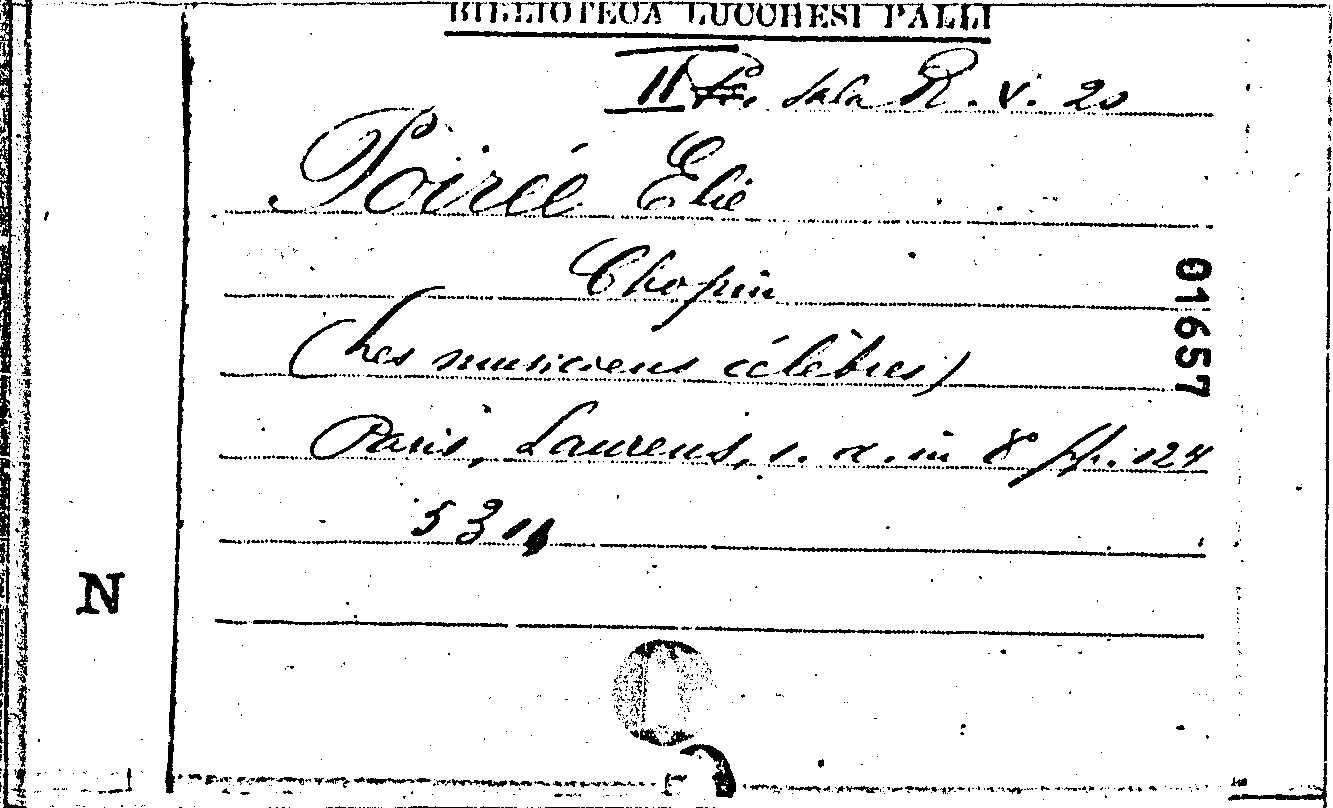 BIBLIOTECA LUCCHESI PALLI
II Sala R. V. 20
Poirée Elie
Chopin
(Les musiciens célèbres)
Paris, Laurens, s. d. in 8° pp. 124
01657
N